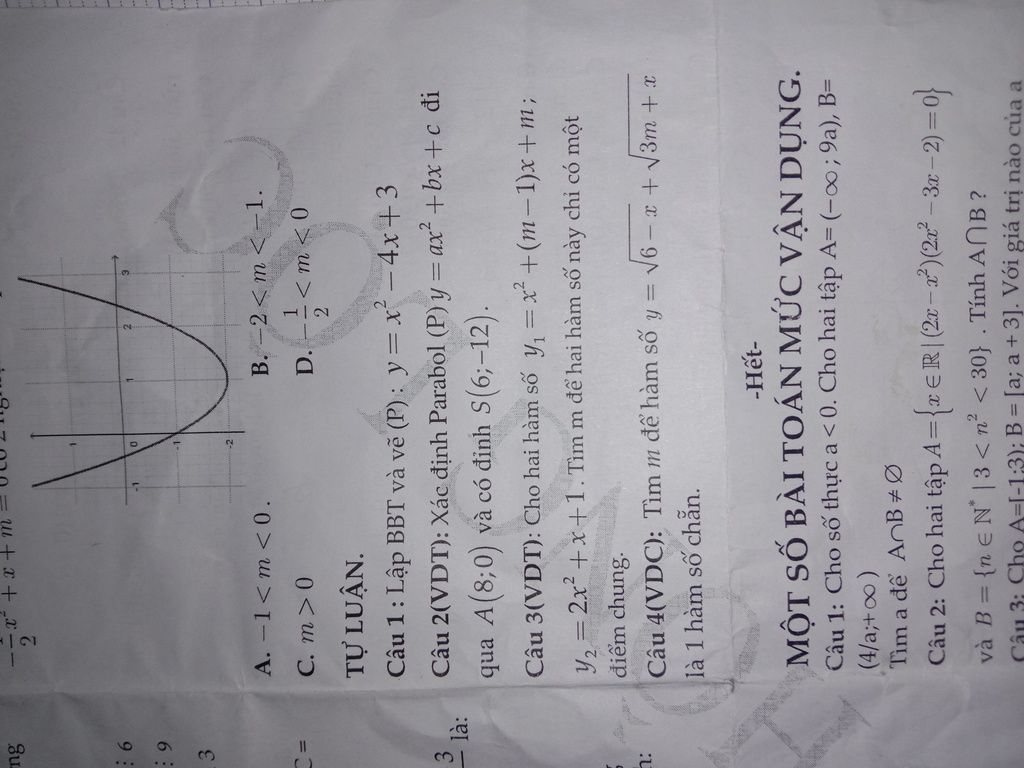 ng
: 6
: 9
3
C =
3
là:
h:
-1/2 x² + x + m = 0 có 2
1
-1
0
1
2
3
-1
-2
A. -1 < m < 0.
B. -2 < m < -1.
C. m > 0
D. -1/2 < m < 0
TỰ LUẬN.
Câu 1 : Lập BBT và vẽ (P): y = x² - 4x + 3
Câu 2(VDT): Xác định Parabol (P) y = ax² + bx + c đi
qua A(8;0) và có đỉnh S(6;-12).
Câu 3(VDT): Cho hai hàm số y₁ = x² + (m-1)x + m ;
y₂ = 2x² + x + 1. Tìm m để hai hàm số này chỉ có một
điểm chung.
Câu 4(VDC): Tìm m để hàm số y = √(6 - x) + √(3m + x)
là 1 hàm số chẵn.
-Hết-
MỘT SỐ BÀI TOÁN MỨC VẬN DỤNG.
Câu 1: Cho số thực a < 0. Cho hai tập A= (-∞ ; 9a), B=
(4/a;+∞)
Tìm a để A∩B ≠ ∅
Câu 2: Cho hai tập A = {x ∈ ℝ | (2x - x²)(2x² - 3x - 2) = 0}
và B = {n ∈ ℕ* | 3 < n² < 30} . Tính A∩B ?
Câu 3: Cho A=[-1;3); B = [a; a + 3]. Với giá trị nào của a